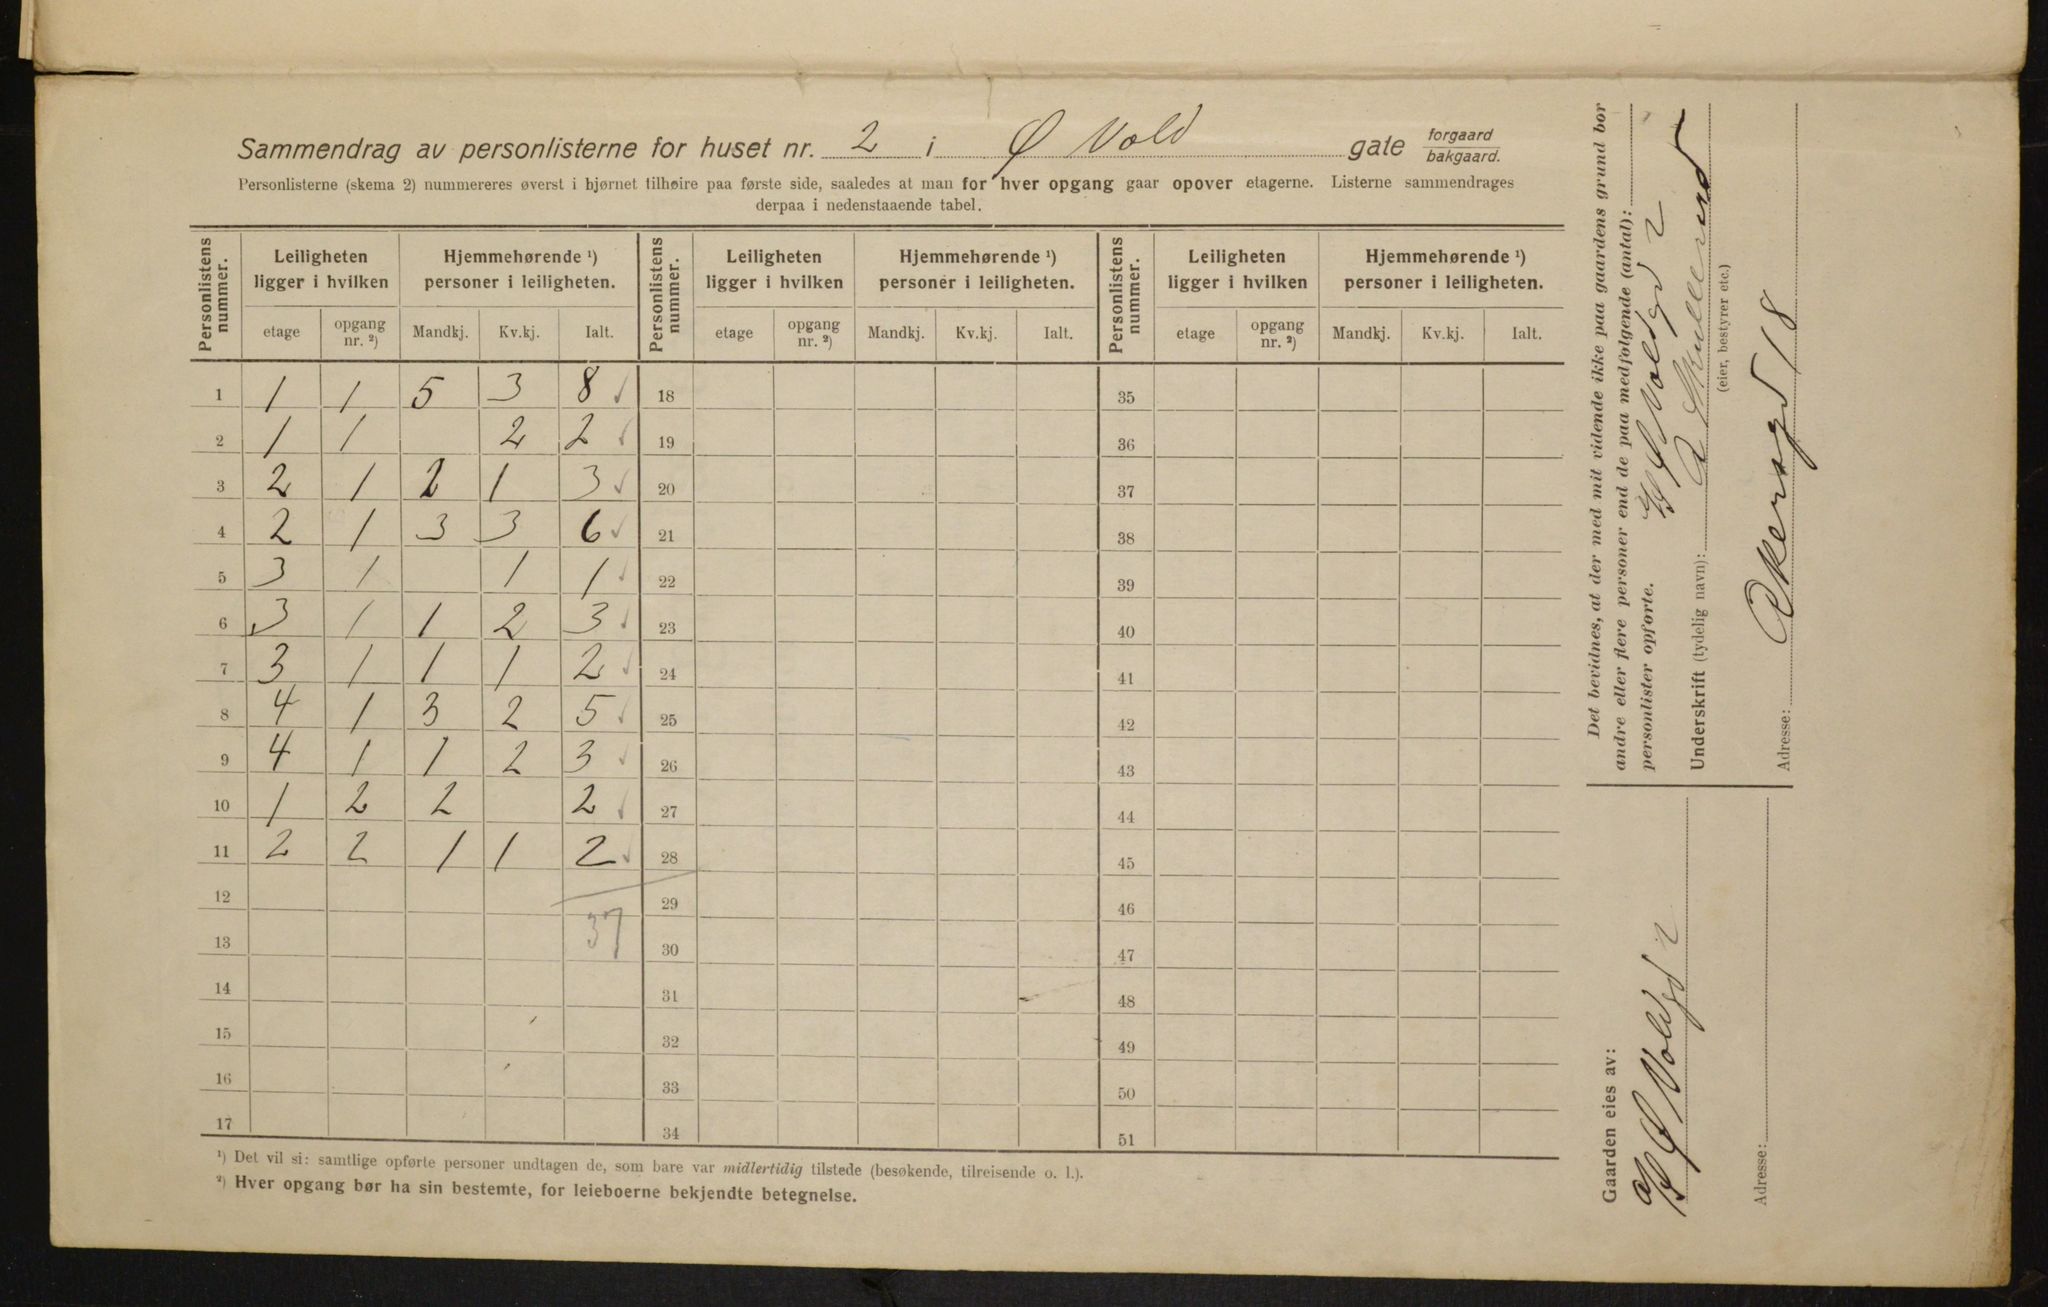 Sammendrag av personlisterne for huset nr. 2 i Ø Vold gate forgaard bakgaard.
Personlisterne (skema 2) nummereres øverst i hjørnet tilhøire paa første side, saaledes at man for hver opgang gaar opover etagerne. Listerne sammendrages
derpaa i nedenstaaende tabel.
Personlistens nummer. Leiligheten ligger i hvilken Hjemmehørende ¹) personer i leiligheten. Personlistens nummer. Leiligheten ligger i hvilken Hjemmehørende ¹) personer i leiligheten. Personlistens nummer. Leiligheten ligger i hvilken Hjemmehørende ¹) personer i leiligheten.
etage opgang nr. ²) Mandkj. Kv.kj. Ialt. etage opgang nr. ²) Mandkj. Kv.kj. Ialt. etage opgang nr. ²) Mandkj. Kv.kj. Ialt.
1 1 1 5 3 8 ✓ 18 35
2 1 1 2 2 ✓ 19 36
3 2 1 2 1 3 ✓ 20 37
4 2 1 3 3 6 ✓ 21 38
5 3 1 1 1 ✓ 22 39
6 3 1 1 2 3 ✓ 23 40
7 3 1 1 1 2 ✓ 24 41
8 4 1 3 2 5 ✓ 25 42
9 4 1 1 2 3 ✓ 26 43
10 1 2 2 2 ✓ 27 44
11 2 2 1 1 2 ✓ 28 45
12 29 46
13 37 30 47
14 31 48
15 32 49
16 33 50
17 34 51
¹) Det vil si: samtlige opførte personer undtagen de, som bare var midlertidig tilstede (besøkende, tilreisende o. l.).
²) Hver opgang bør ha sin bestemte, for leieboerne bekjendte betegnelse.
Det bevidnes, at der med mit vidende ikke paa gaardens grund bor
andre eller flere personer end de paa medfølgende (antal):
personlister opførte. Ø Voldgd 2
Underskrift (tydelig navn): A Skullerud
(eier, bestyrer etc.)
Adresse: Akersgd 18
Gaarden eies av:
A/S Ø Voldgd 2
Adresse: